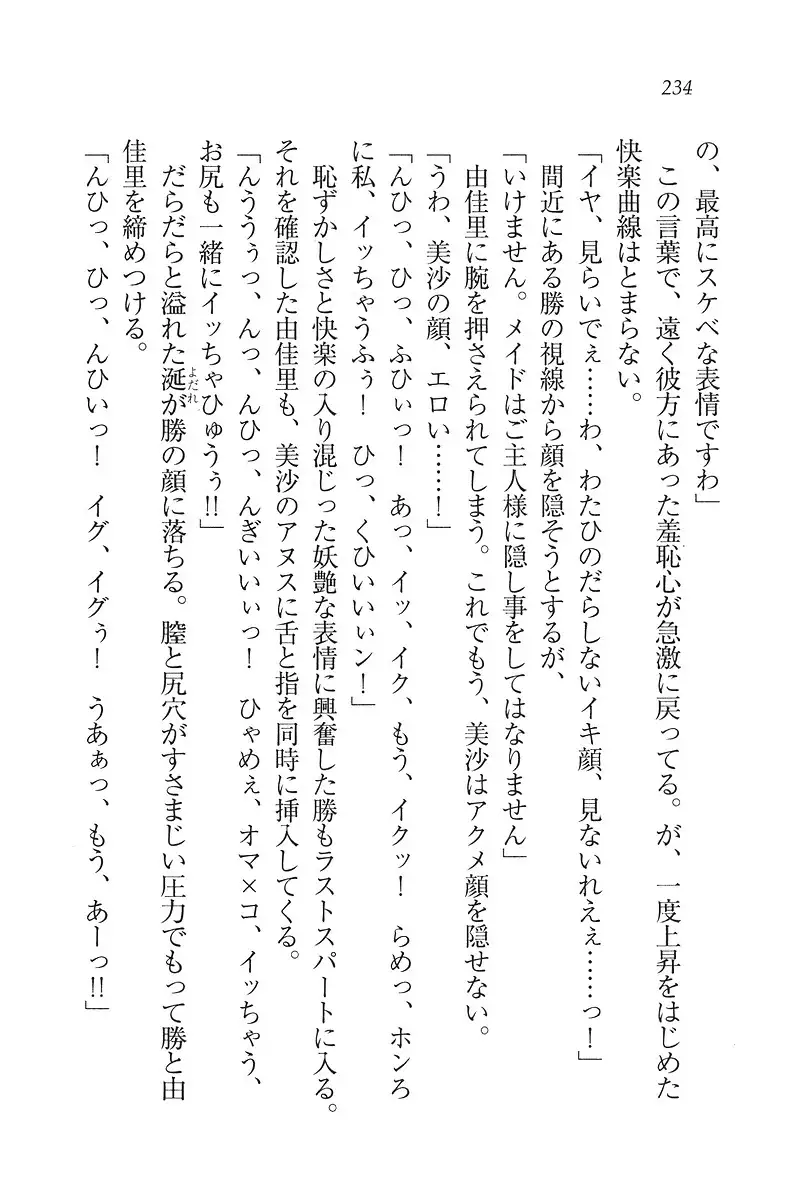 234
の、最高にスケベな表情ですわ」
　この言葉で、遠く彼方にあった羞恥心が急激に戻ってる。が、一度上昇をはじめた
快楽曲線はとまらない。
「イヤ、見らいでぇ……わ、わたひのだらしないイキ顔、見ないれえぇ……っ！」
　間近にある勝の視線から顔を隠そうとするが、
「いけません。メイドはご主人様に隠し事をしてはなりません」
　由佳里に腕を押さえられてしまう。これでもう、美沙はアクメ顔を隠せない。
「うわ、美沙の顔、エロい……！」
「んひっ、ひっ、ふひぃっ！　あっ、イッ、イク、もう、イクッ！　らめっ、ホンろ
に私、イッちゃうふぅ！　ひっ、くひいいぃン！」
　恥ずかしさと快楽の入り混じった妖艶な表情に興奮した勝もラストスパートに入る。
それを確認した由佳里も、美沙のアヌスに舌と指を同時に挿入してくる。
「んううぅっ、んっ、んひっ、んぎいいぃっ！　ひゃめぇ、オマ×コ、イッちゃう、
お尻も一緒にイッちゃひゅうぅ!!」
　だらだらと溢れた涎よだれが勝の顔に落ちる。膣と尻穴がすさまじい圧力でもって勝と由
佳里を締めつける。
「んひっ、ひっ、んひいっ！　イグ、イグぅ！　うあぁっ、もう、あーっ!!」